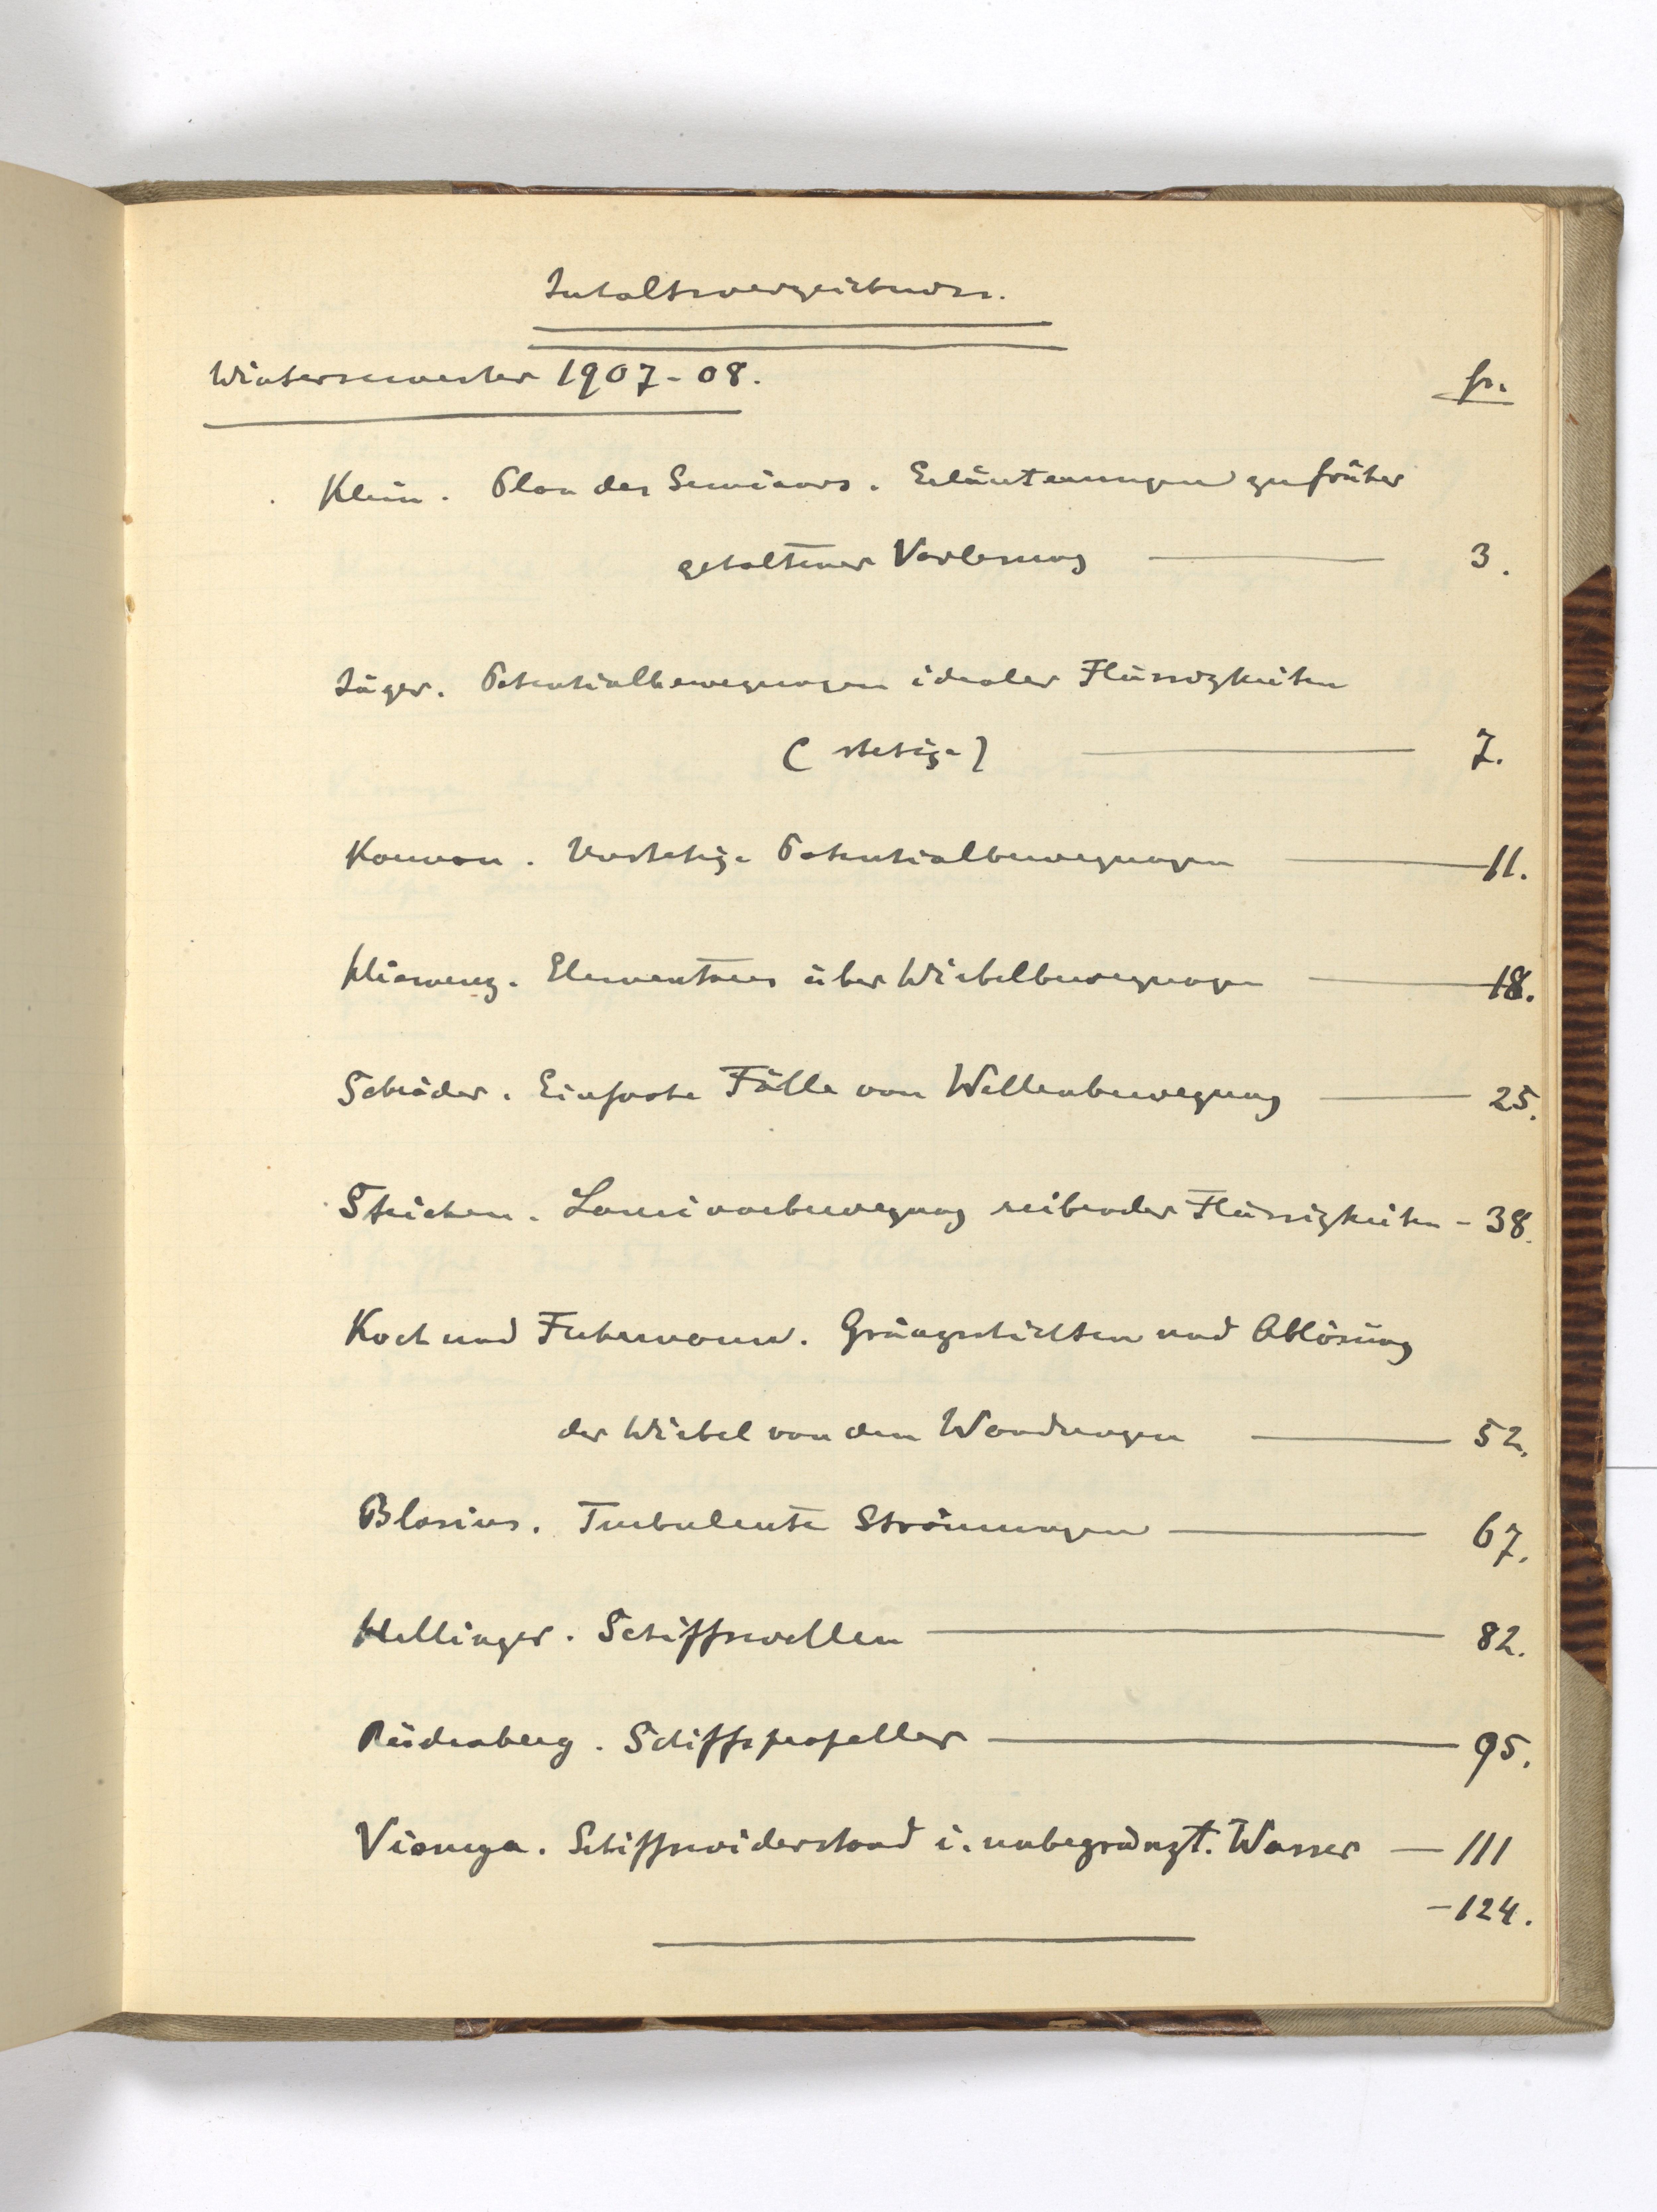 Inhaltsverzeichniss.
Wintersemester 1907-08.
p.
Klein. Plan des Seminars. Erläuterungen zu früher
gehaltener Vorlesung — 3.
Jäger. Potentialbewegungen idealer Flüssigkeiten
(stetige) — 7.
Unstetige Potentialbewegungen — 11.
Hiemenz. Elementares über Wirbelbewegungen — 18.
Schröder. Einfache Fälle von Wellenbewegung — 25.
Laminarbewegung reibender Flüssigkeiten - 38.
Koch und Fuhrmann. Gränzschichten und Ablösung
der Wirbel von den Wandungen — 52.
Blasius. Turbulente Strömungen — 67.
Hellinger. Schiffswellen — 82.
Rüdenberg. Schiffspropeller — 95.
Schiffswiderstand i. unbegränzt. Wasser — 111
-124.